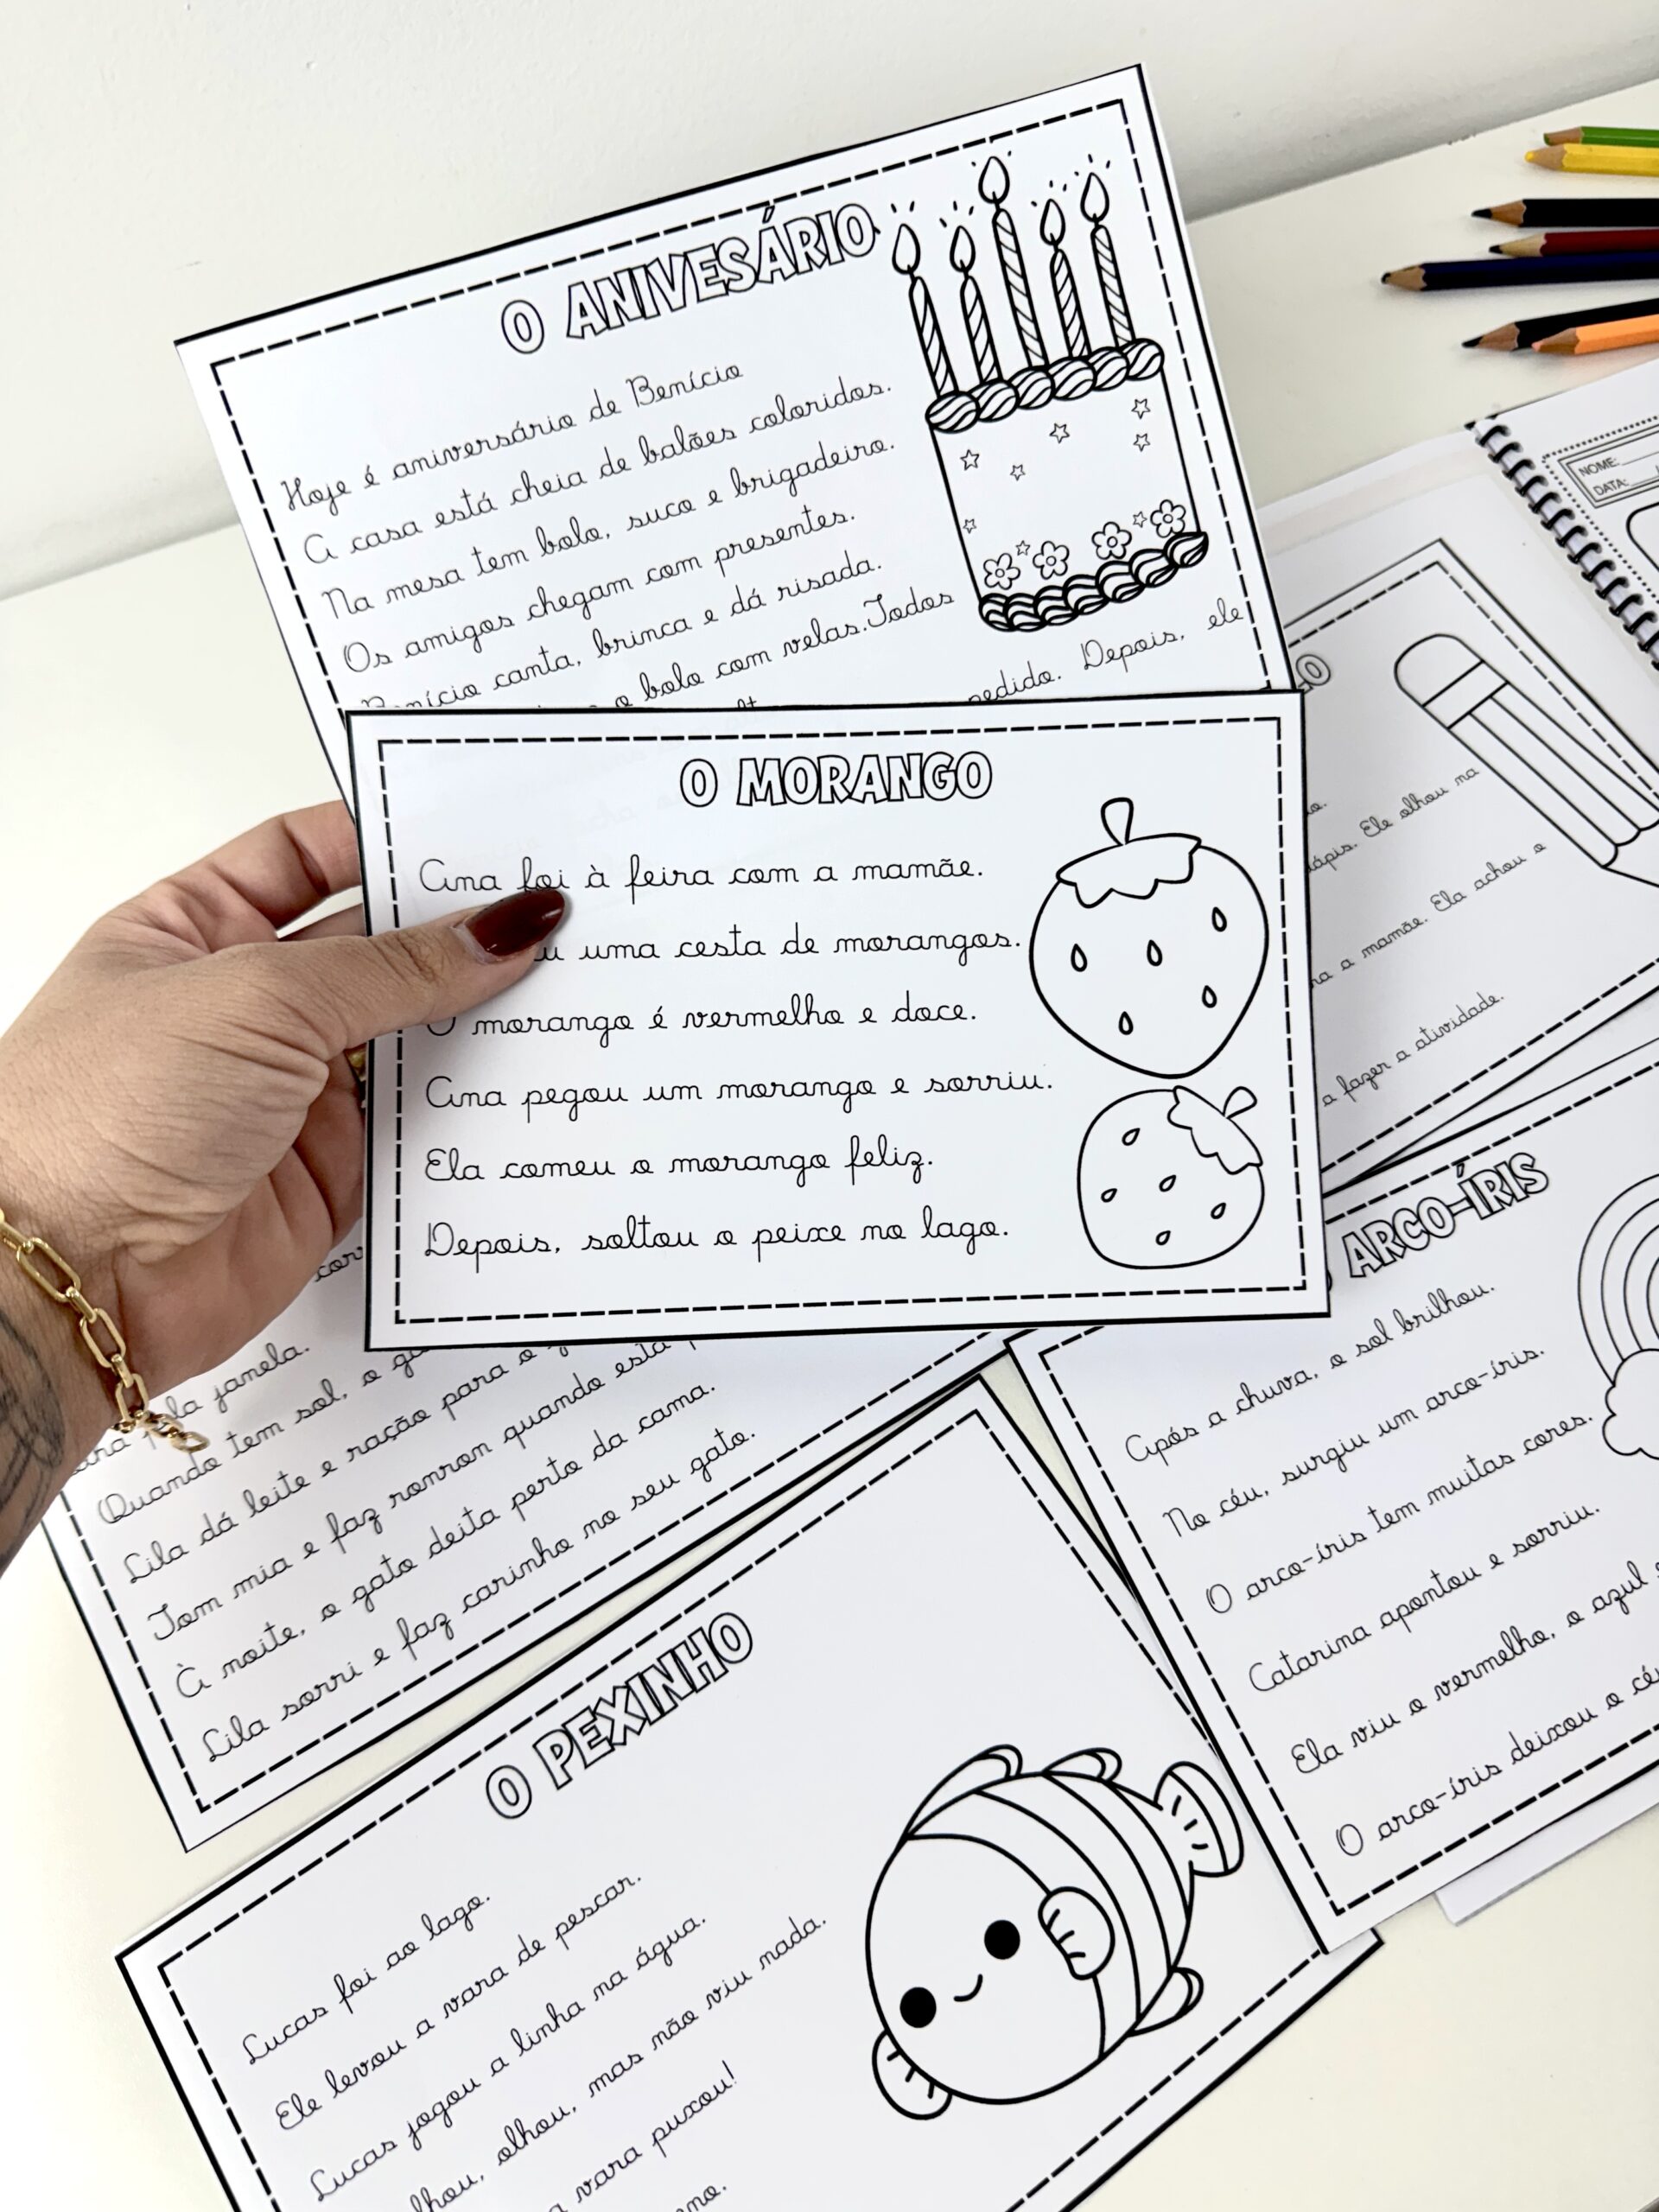 O ANIVESÁRIO
Hoje é aniversário de Benício
A casa está cheia de balões coloridos.
Na mesa tem bolo, suco e brigadeiro.
Os amigos chegam com presentes.
Benício canta, brinca e dá risada.
o bolo com velas.Todos
pedido. Depois, ele
O MORANGO
Ana foi à feira com a mamãe.
uma cesta de morangos.
O morango é vermelho e doce.
Ana pegou um morango e sorriu.
Ela comeu o morango feliz.
Depois, soltou o peixe no lago.
NOME:
DATA:
lápis. Ele olhou na
a mamãe. Ela achou o
a fazer a atividade.
ARCO-ÍRIS
Após a chuva, o sol brilhou.
No céu, surgiu um arco-íris.
O arco-íris tem muitas cores.
Catarina apontou e sorriu.
Ela viu o vermelho, o azul
O arco-íris deixou o
janela.
Quando tem sol, o
Lila dá leite e ração para o
Tom mia e faz ronron quando está
À noite, o gato deita perto da cama.
Lila sorri e faz carinho no seu gato.
O PEXINHO
Lucas foi ao lago.
Ele levou a vara de pescar.
Lucas jogou a linha na água.
olhou, mas não viu nada.
vara puxou!